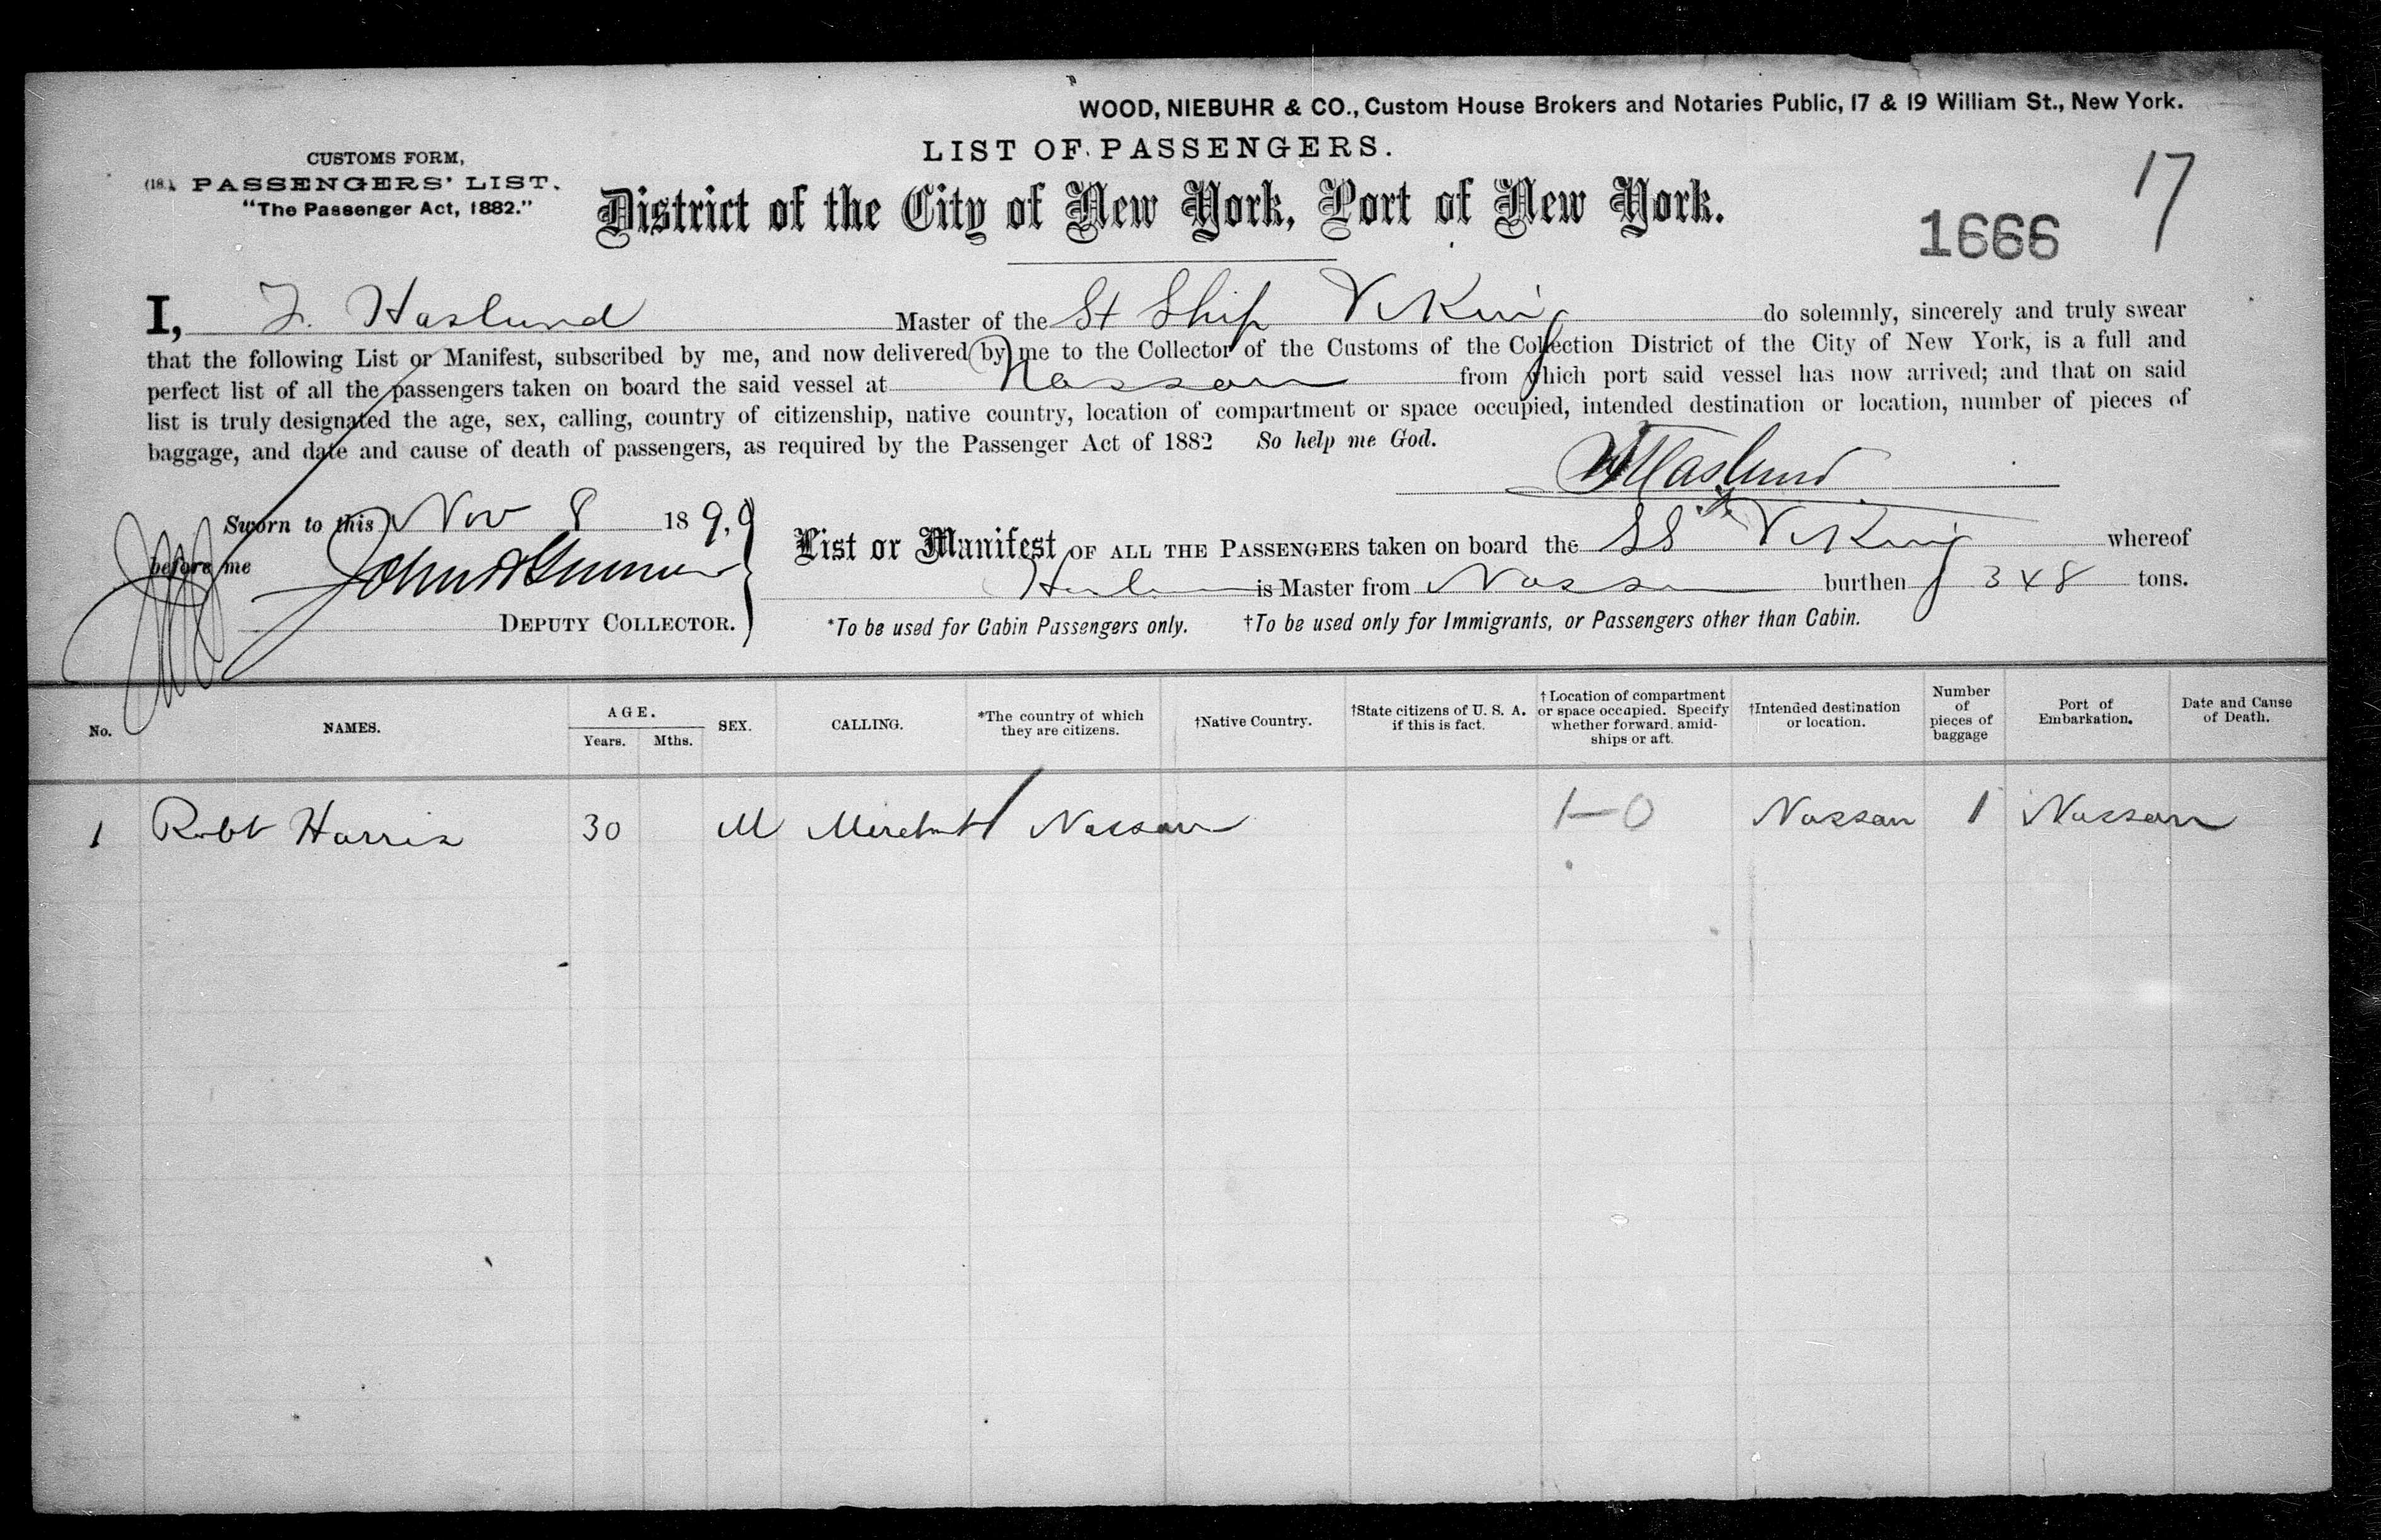 WOOD, NIEBUHR & CO., Custom House Brokers and Notaries Public, 17 & 19 William St., New York.
LIST OF PASSENGERS.
CUSTOMS FORM,
(18.) PASSENGERS' LIST.
"The Passenger Act, 1882."
District of the City of New York, Port of New York.
17
1666
I, F. Haslund Master of the St Ship Viking do solemnly, sincerely and truly swear
that the following List or Manifest, subscribed by me, and now delivered by me to the Collector of the Customs of the Collection District of the City of New York, is a full and
perfect list of all the passengers taken on board the said vessel at Nassau from which port said vessel has now arrived; and that on said
list is truly designated the age, sex, calling, country of citizenship, native country, location of compartment or space occupied, intended destination or location, number of pieces of
baggage, and date and cause of death of passengers, as required by the Passenger Act of 1882 So help me God.
Haslund
Sworn to this Nov 8 1899
before me John
DEPUTY COLLECTOR.
List or Manifest OF ALL THE PASSENGERS taken on board the SS Viking whereof
is Master from Nassau burthen 348 tons.
*To be used for Cabin Passengers only. †To be used only for Immigrants, or Passengers other than Cabin.
No. NAMES. AGE. Years. Mths. SEX. CALLING. *The country of which they are citizens. †Native Country. †State citizens of U. S. A. if this is fact. †Location of compartment or space occupied. Specify whether forward, amidships or aft. †Intended destination or location. Number of pieces of baggage Port of Embarkation. Date and Cause of Death.
1 Robt Harris 30 M Merchant Nassau 1-0 Nassau 1 Nassau